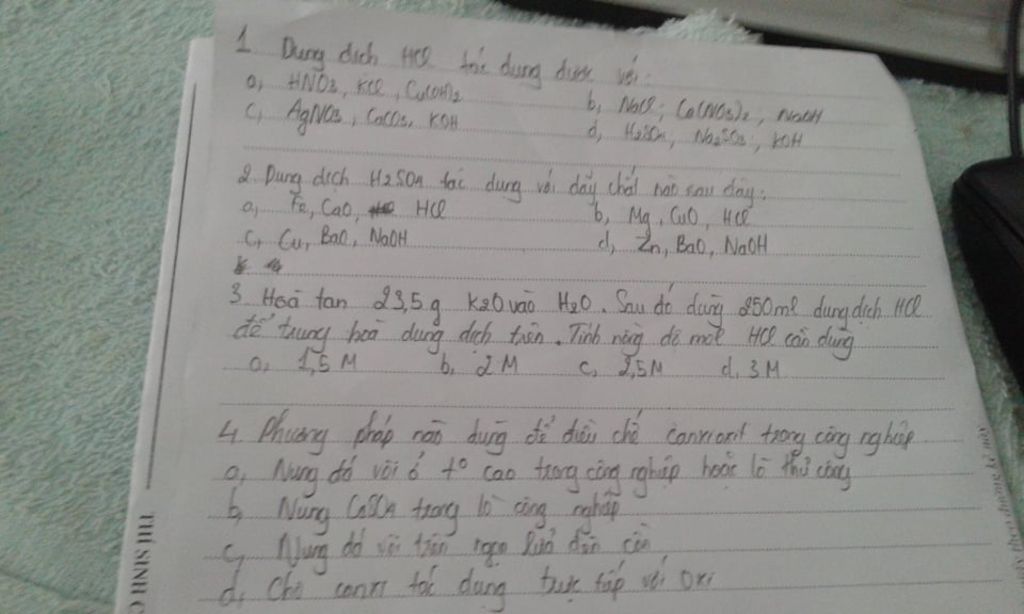 1 Dung dịch HCl tác dụng được với:
a, HNO3, KCl, Cu(OH)2 b, NaCl, Ca(NO3)2, NaOH
c, AgNO3, CaCO3, KOH d, H2SO4, Na2SO3, KOH
2. Dung dịch H2SO4 tác dụng với dãy chất nào sau đây:
a, Fe, CaO, HCl b, Mg, CuO, HCl
c, Cu, BaO, NaOH d, Zn, BaO, NaOH
3 Hoà tan 23,5g K2O vào H2O. Sau đó dùng 250ml dung dịch HCl
để trung hoà dung dịch trên. Tính nồng độ mol HCl cần dùng
a, 1,5M b, 2M c, 2,5M d. 3M
4. Phương pháp nào dùng để điều chế canxi oxit trong công nghiệp
a, Nung đá vôi ở t° cao trong công nghiệp hoặc lò thủ công
b, Nung CaSO4 trong lò công nghiệp
c, Nung đá vôi trên ngọn lửa đèn cồn
d, Cho canxi tác dụng trực tiếp với Oxi
THÍ SINH